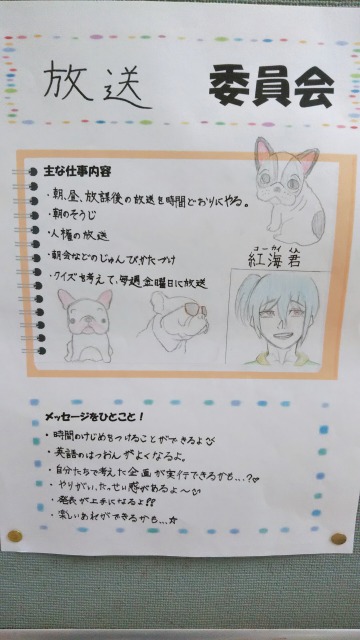 放送 委員会
主な仕事内容
・朝、昼、放課後の放送を時間どおりにやる。
・朝のそうじ
・人権の放送
・朝会などのじゅんびかたづけ
・クイズを考えて、毎週金曜日に放送
コーカイ くん
紅海君
メッセージをひとこと！
・時間のけじめをつけることができるよ♡
・英語のはつおんがよくなるよ。
・自分たちで考えた企画が実行できるかも…?♡
・やりがい、たっせい感があるよ～♡
・発表が上手になるよ!!
・楽しいあれができるかも…☆